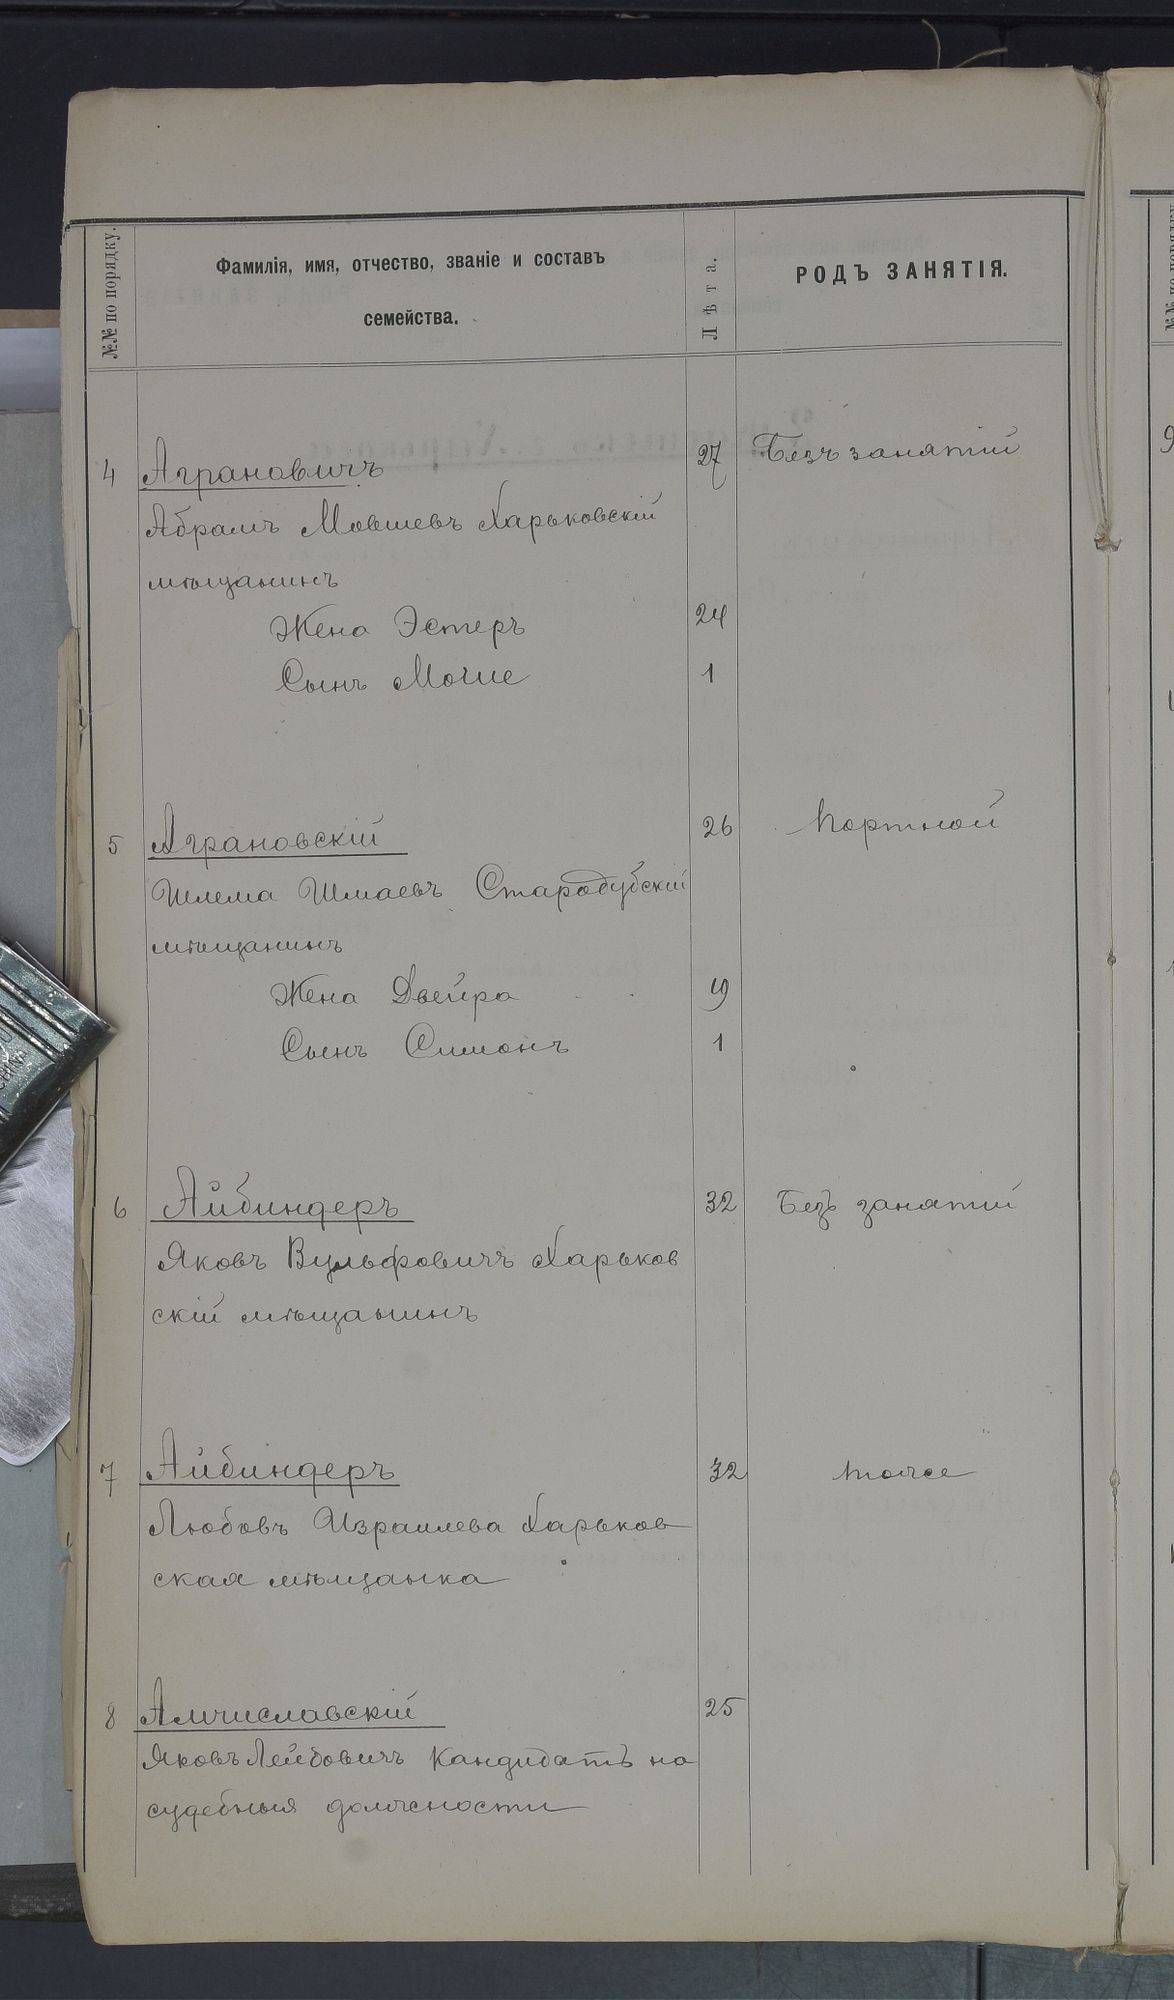 №№ по порядку.
Фамилія, имя, отчество, званіе и составъ
семейства.
Лѣта.
РОДЪ ЗАНЯТІЯ.
4 Аграновичъ 27 Безъ занятій
Абрамъ Мовшевъ Харьковскій
мѣщанинъ
Жена Эстеръ 24
Сынъ Моше 1
5 Аграновскій 26 Портной
Шлема Шмаевъ Стародубскій
мѣщанинъ
Жена Двейра 19
Сынъ Симонъ 1
6 Айбиндеръ 32 Безъ занятій
Яковъ Вульфовичъ Харьков
скій мѣщанинъ
7 Айбиндеръ 32 тоже
Любовь Израилева Харьков
ская мѣщанка
8 Амчиславскій 25
Яковъ Лейбовичъ Кандидатъ на
судебныя должности